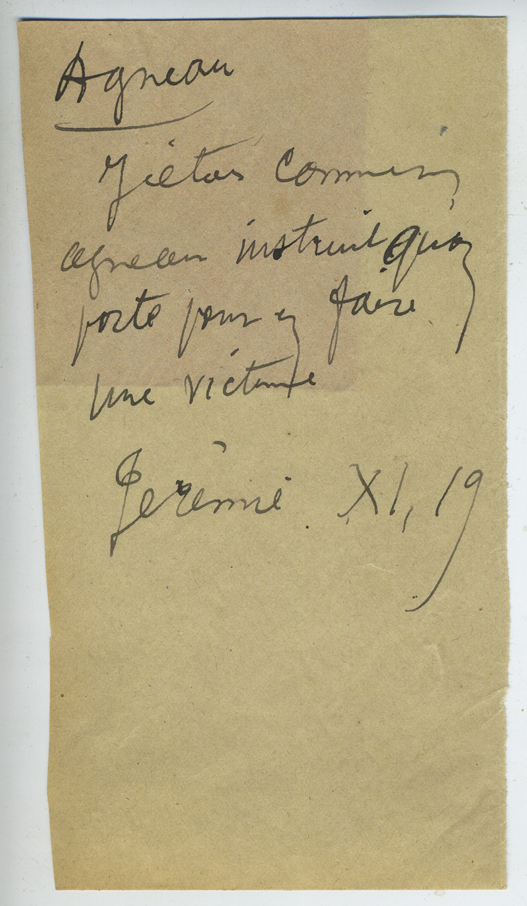 Agneau
J'étais comme un
agneau instruit qu'on
porte pour en faire
une victime
Jérémie XI, 19